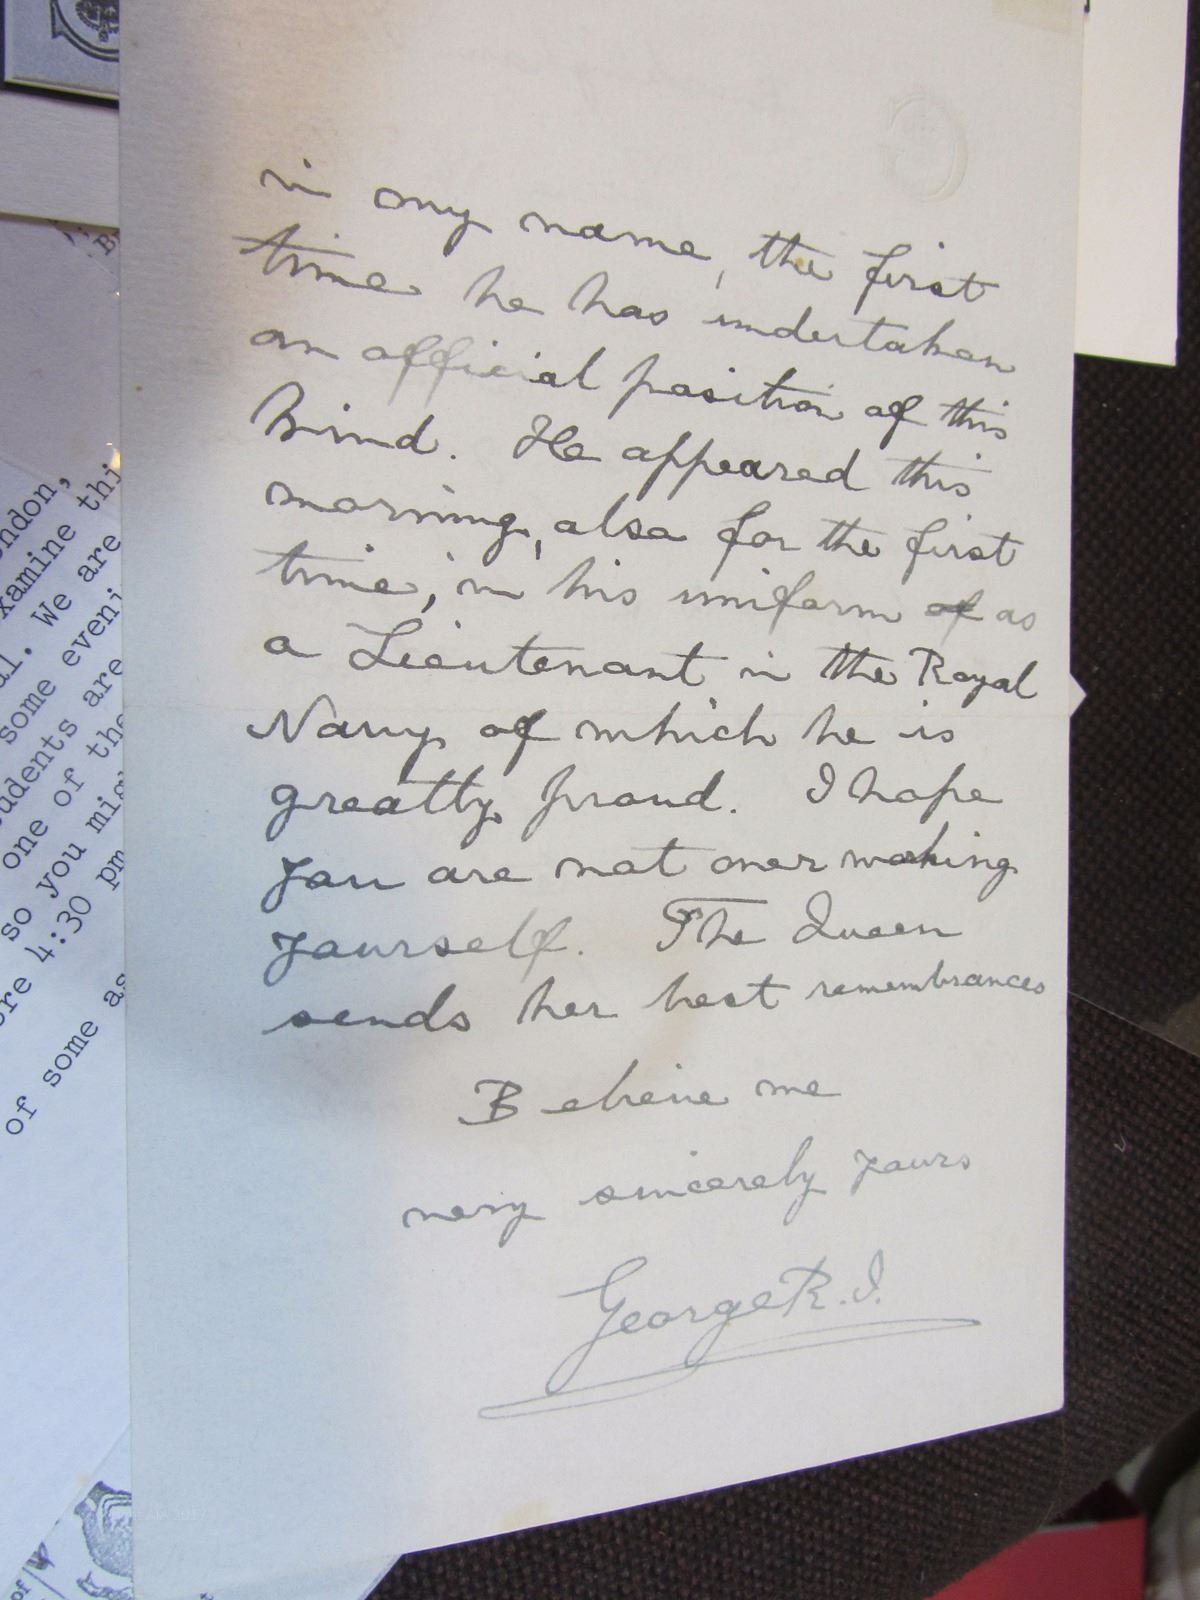 in my name, the first
time he has undertaken
an official position of this
kind. He appeared this
morning, also for the first
time, in his uniform of as
a Lieutenant in the Royal
Navy of which he is
greatly proud. I hope
you are not over working
yourself. The Queen
sends her best remembrances
Believe me
very sincerely yours
George R.I.
ondon,
xamine thi
al. We are
some eveni
udents are
one of the
so you mig
re 4:30 pm
of some as
of